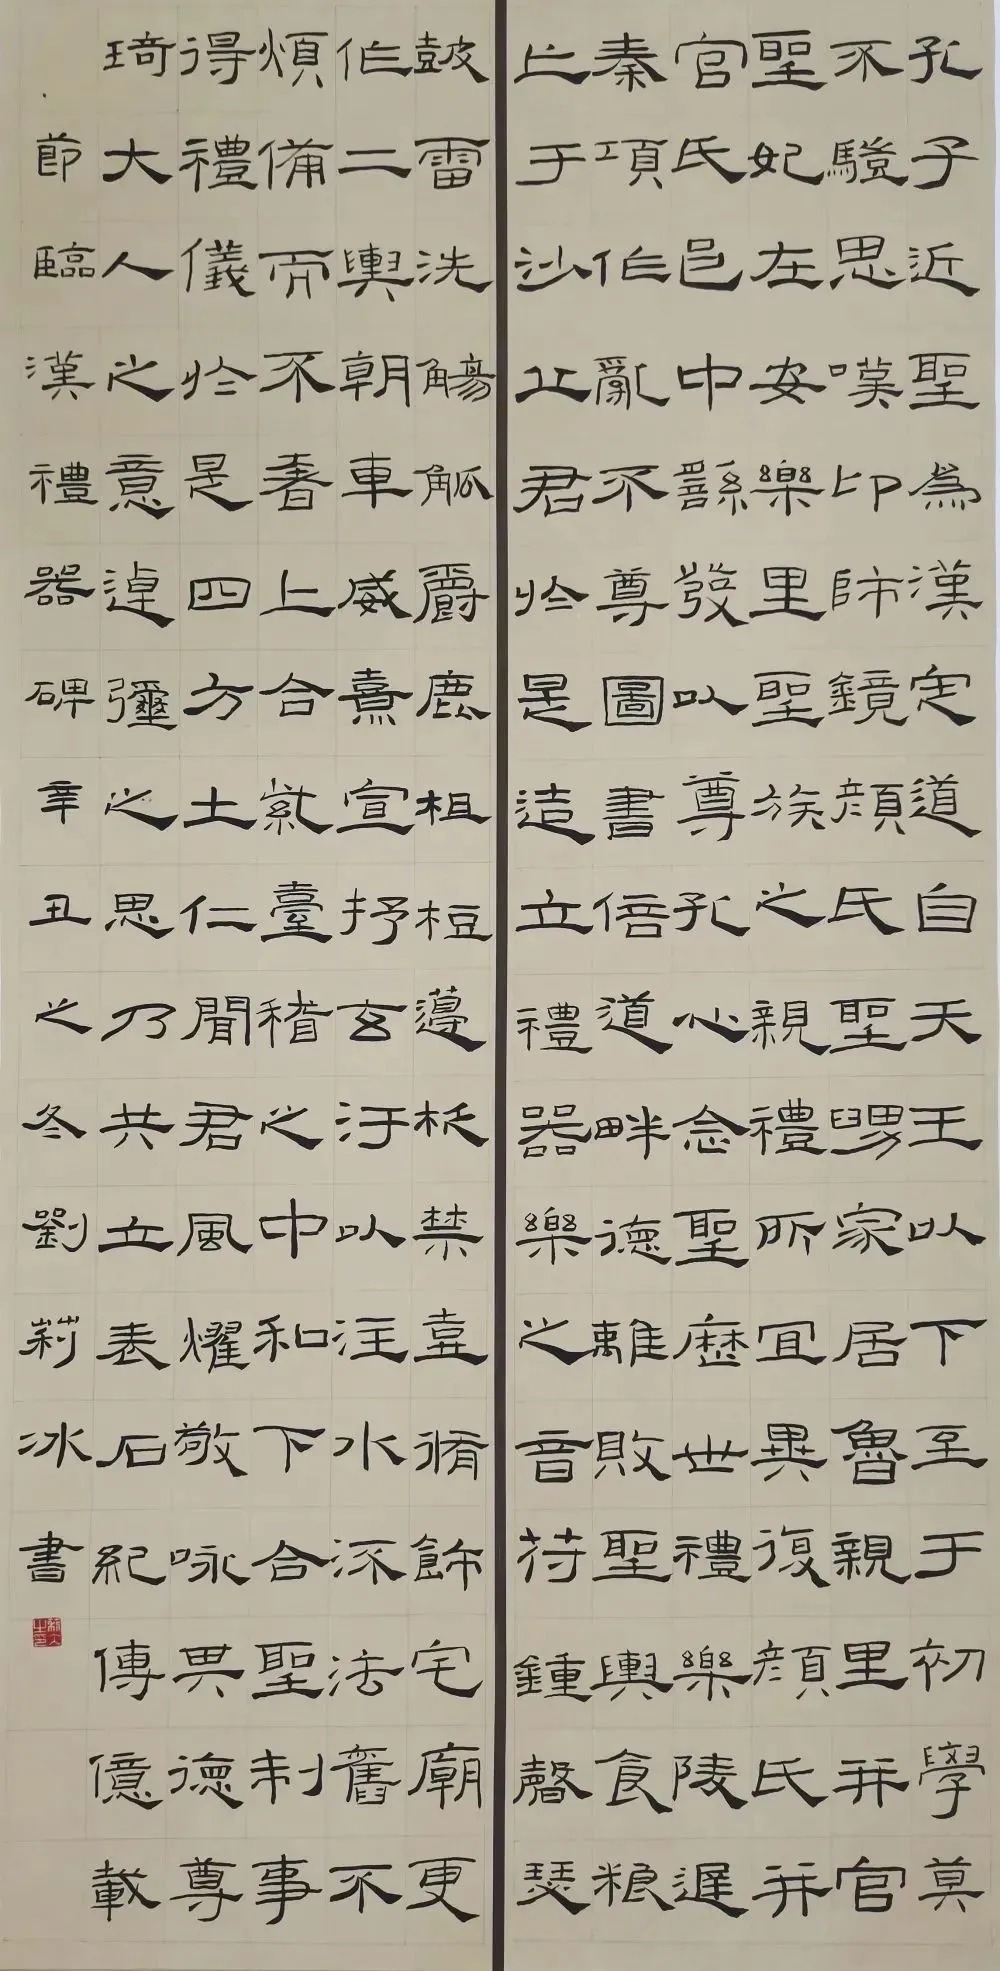 孔子近聖為漢定道自天王以下至于初學莫
不驥思嘆卬師鏡顏氏聖舅家居魯親里并官
聖妃在安樂里聖族之親禮所宜異復顏氏并
官氏邑中繇發以尊孔心念聖歷世禮樂陵遲
秦項作亂不尊圖書倍道畔德離敗聖輿食糧
亡于沙丘君於是造立禮器樂之音苻鍾磬瑟
鼓雷洗觴觚爵鹿柤梪籩柉禁壺脩飾宅廟更
作二輿朝車威熹宣抒玄汙以注水流法舊不
煩備而不奢上合紫臺稽之中和下合聖制事
得禮儀於是四方土仁聞君風燿敬咏其德尊
琦大人之意逴彌之思乃共立表石紀傳億載
節臨漢禮器碑辛丑之冬劉莉冰書